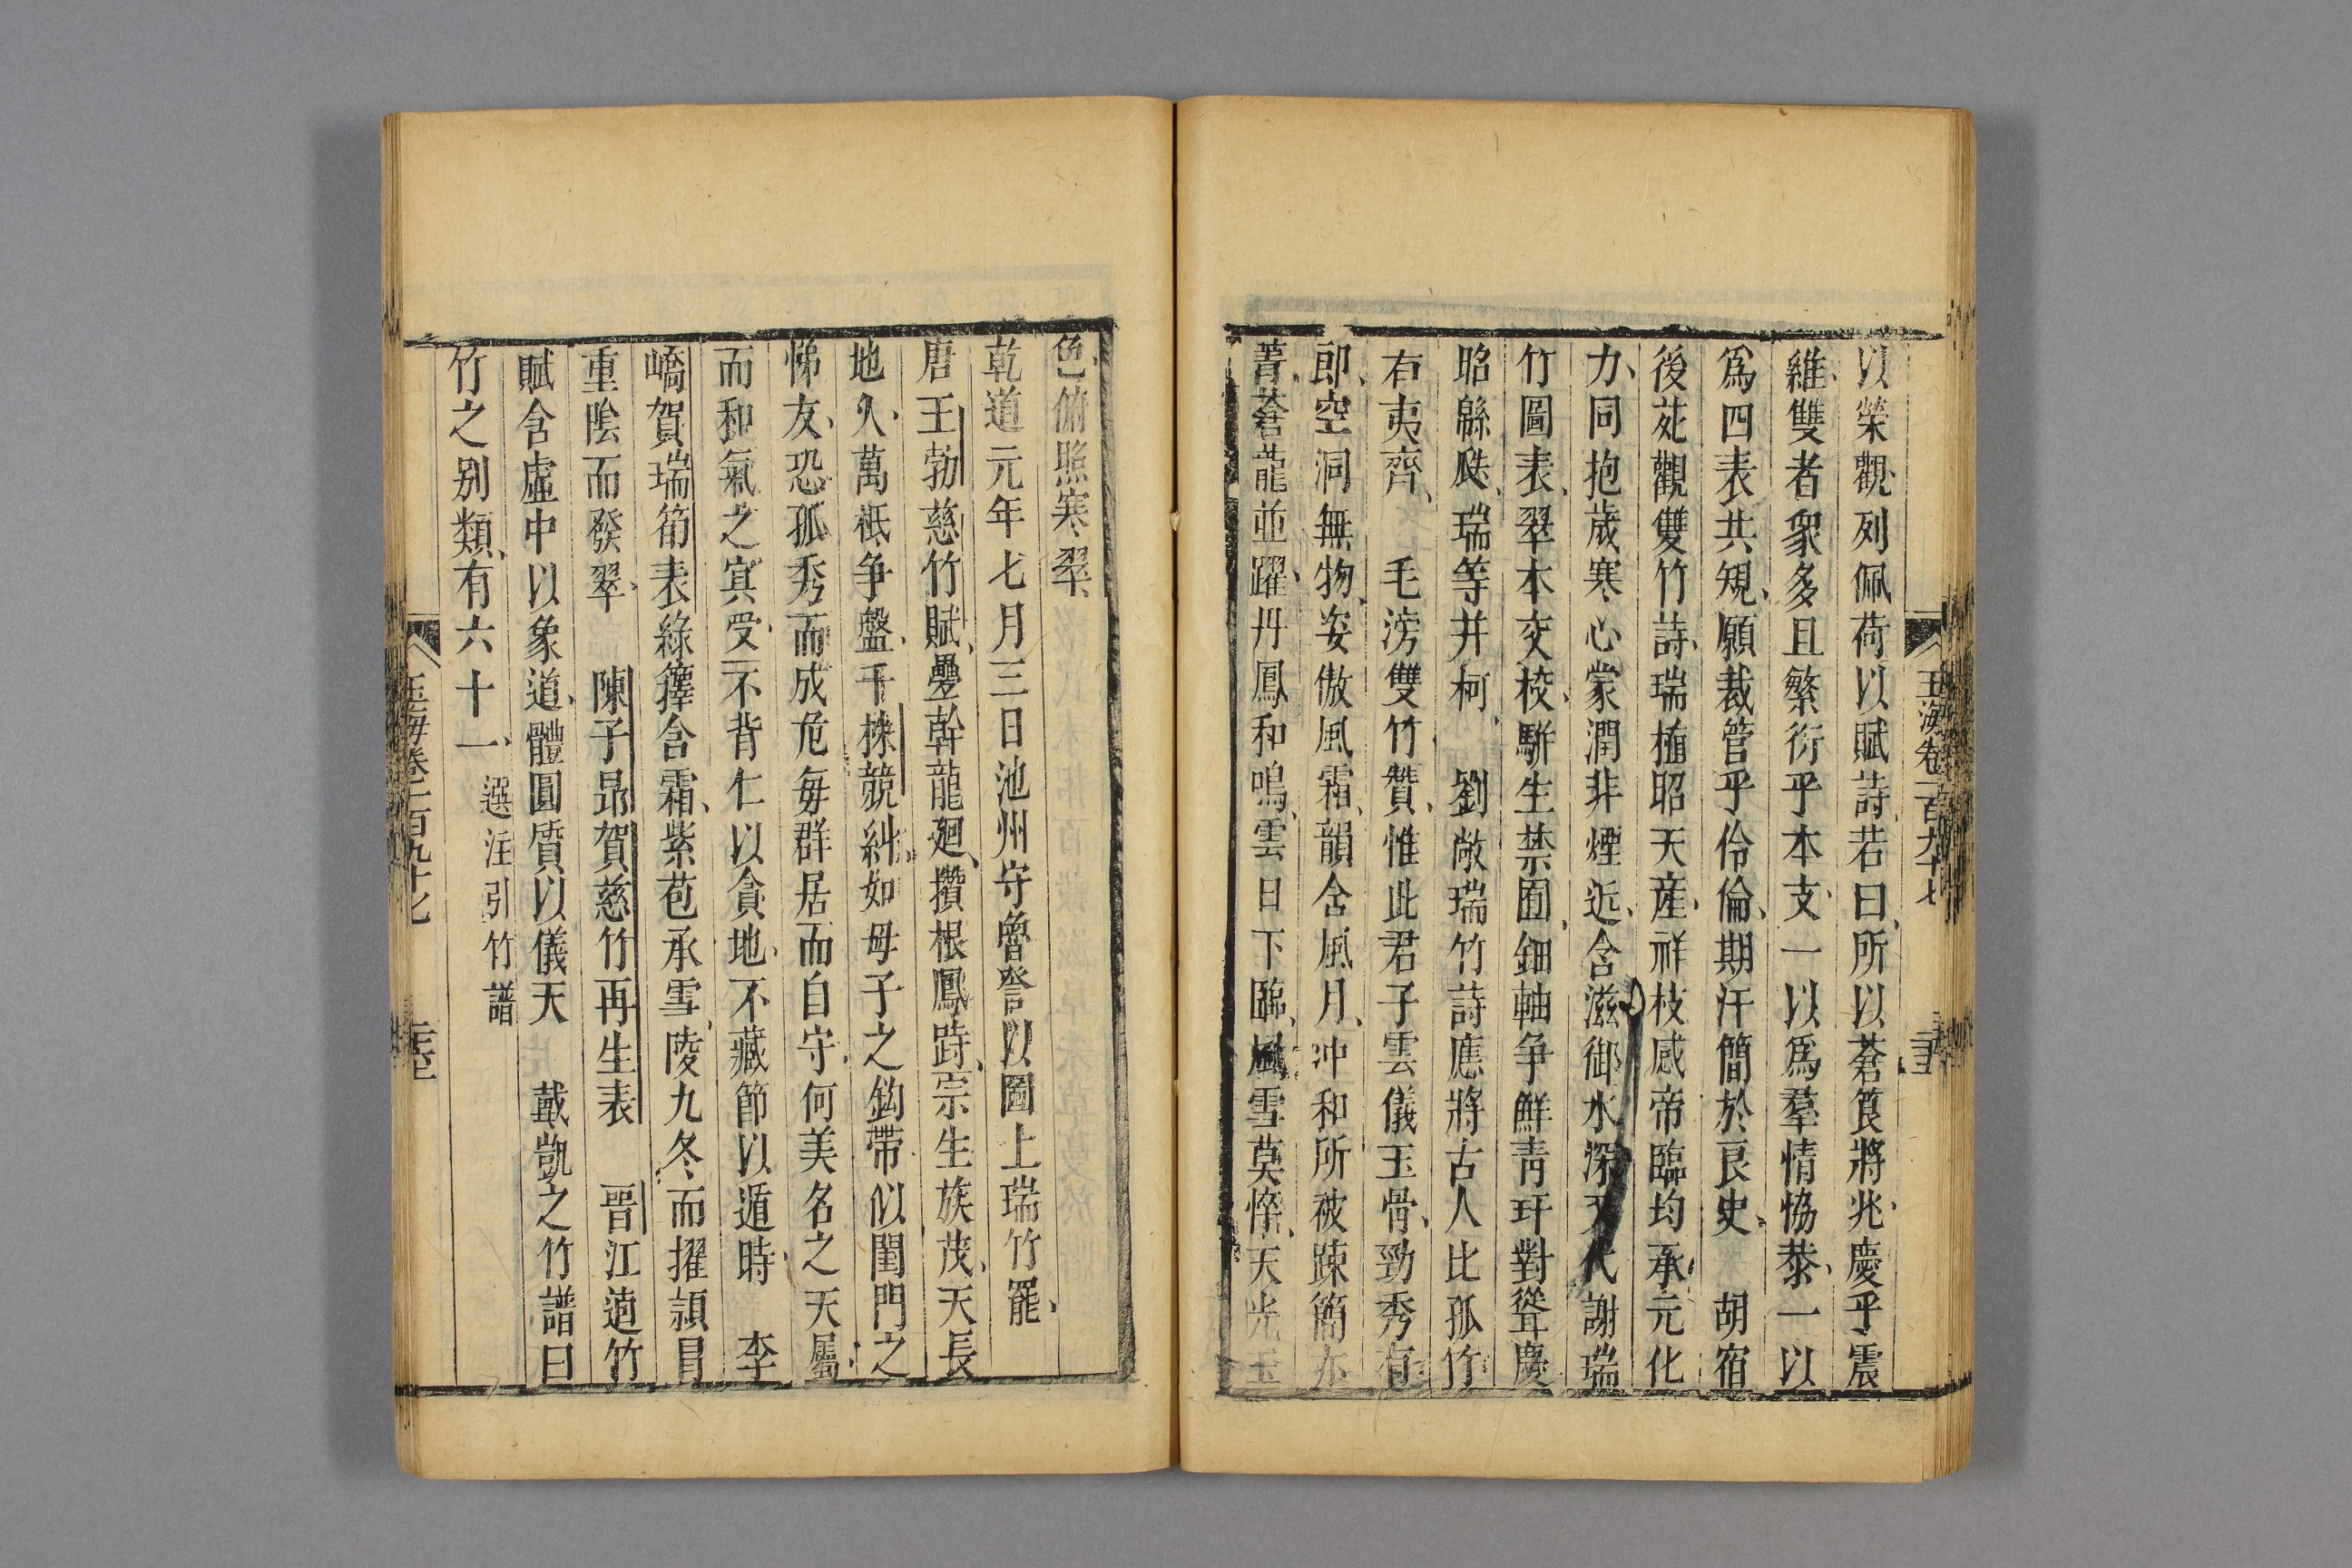 玉海卷一百九十七
以榮觀列佩荷以賦詩若曰所以蒼筤將兆慶乎震
維雙者衆多且繁衍乎本支一以爲羣情恊㳟一以
爲四表共規願裁管乎伶倫期汗簡於良史 胡宿
後苑觀雙竹詩瑞植昭天產祥枝感帝臨均承元化
力同抱歲寒心蒙潤非煙近含滋御水深 代謝瑞
竹圖表翠本交校駢生禁囿鈿軸争鮮青玕對聳慶
昭緜瓞瑞等并柯 劉敞瑞竹詩應將古人比孤竹
有夷齊 毛滂雙竹贊惟此君子雲儀玉骨勁秀有
郎空洞無物妥傲風霜韻舍風月冲和所被踈簡亦
菁蒼龍並躍丹鳳和鳴雲日下臨風雪莫憏天光玉
色俯照寒翠
乾道元年七月三日池州守魯詧以圖上瑞竹罷
唐王勃慈竹賦疊幹龍廻攢根鳳跱宗生族茂天長
地久萬柢争盤千株競糾如母子之鈎帶似閨門之
悌友恐孤秀而成危每群居而自守何美名之天屬
而和氣之寘受不背仁以貪地不藏節以遁時 李
嶠賀瑞筍表綠籜含霜紫苞承雪陵九冬而擢頴冒
重陰而發翠 陳子昻賀慈竹再生表 晋江逌竹
賦含虛中以象道體圓質以儀天 戴凱之竹譜曰
竹之别類有六十一選注引竹譜
玉海卷一百九十七